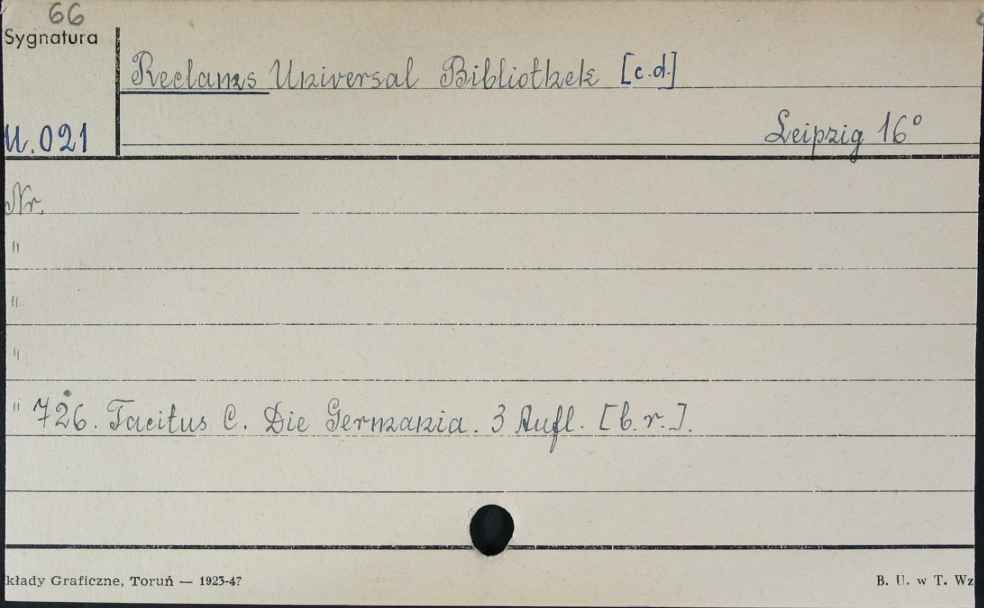 66
Sygnatura
Reclams Universal Bibliothek [c.d.]
U.021
Leipzig 16°
Nr.
"
"
"
" 726. Tacitus C. Die Germania. 3 Aufl. [b.r.].
kłady Graficzne, Toruń — 1923-47
B. U. w T. Wz